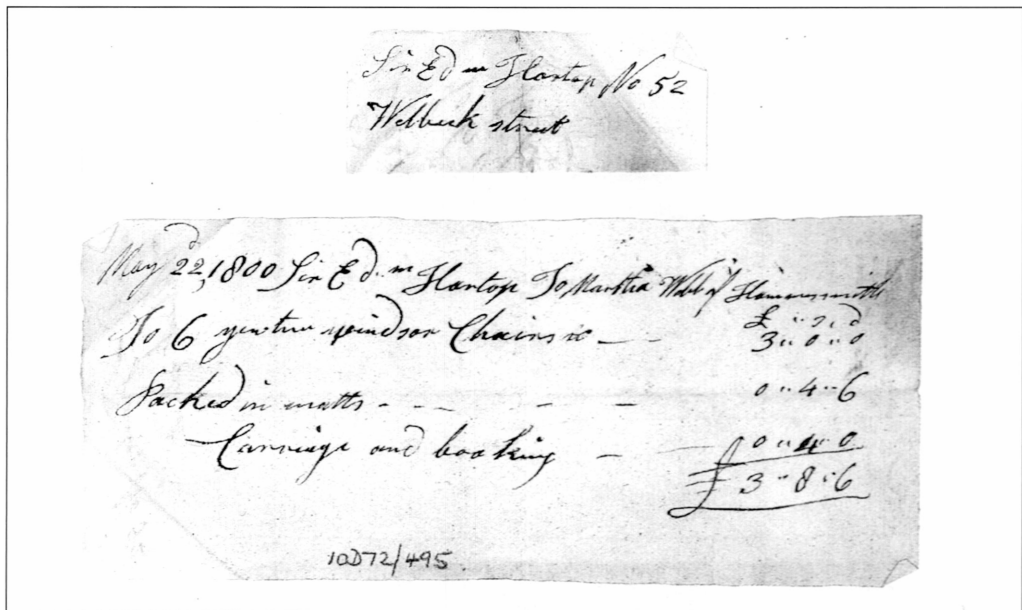 Sir Edm Hartop No 52
Welbeck street
May 22d, 1800 Sir Ed.m Hartop To Martha Webb of Hammersmith
£ " s " d
To 6 yewtree windsor Chairs - - 3 " 0 " 0
Packed in matts - - - - - 0 " 4 " 6
Carriage and booking - - 0 " 4 " 0
£ 3 " 8 " 6
10D72/495